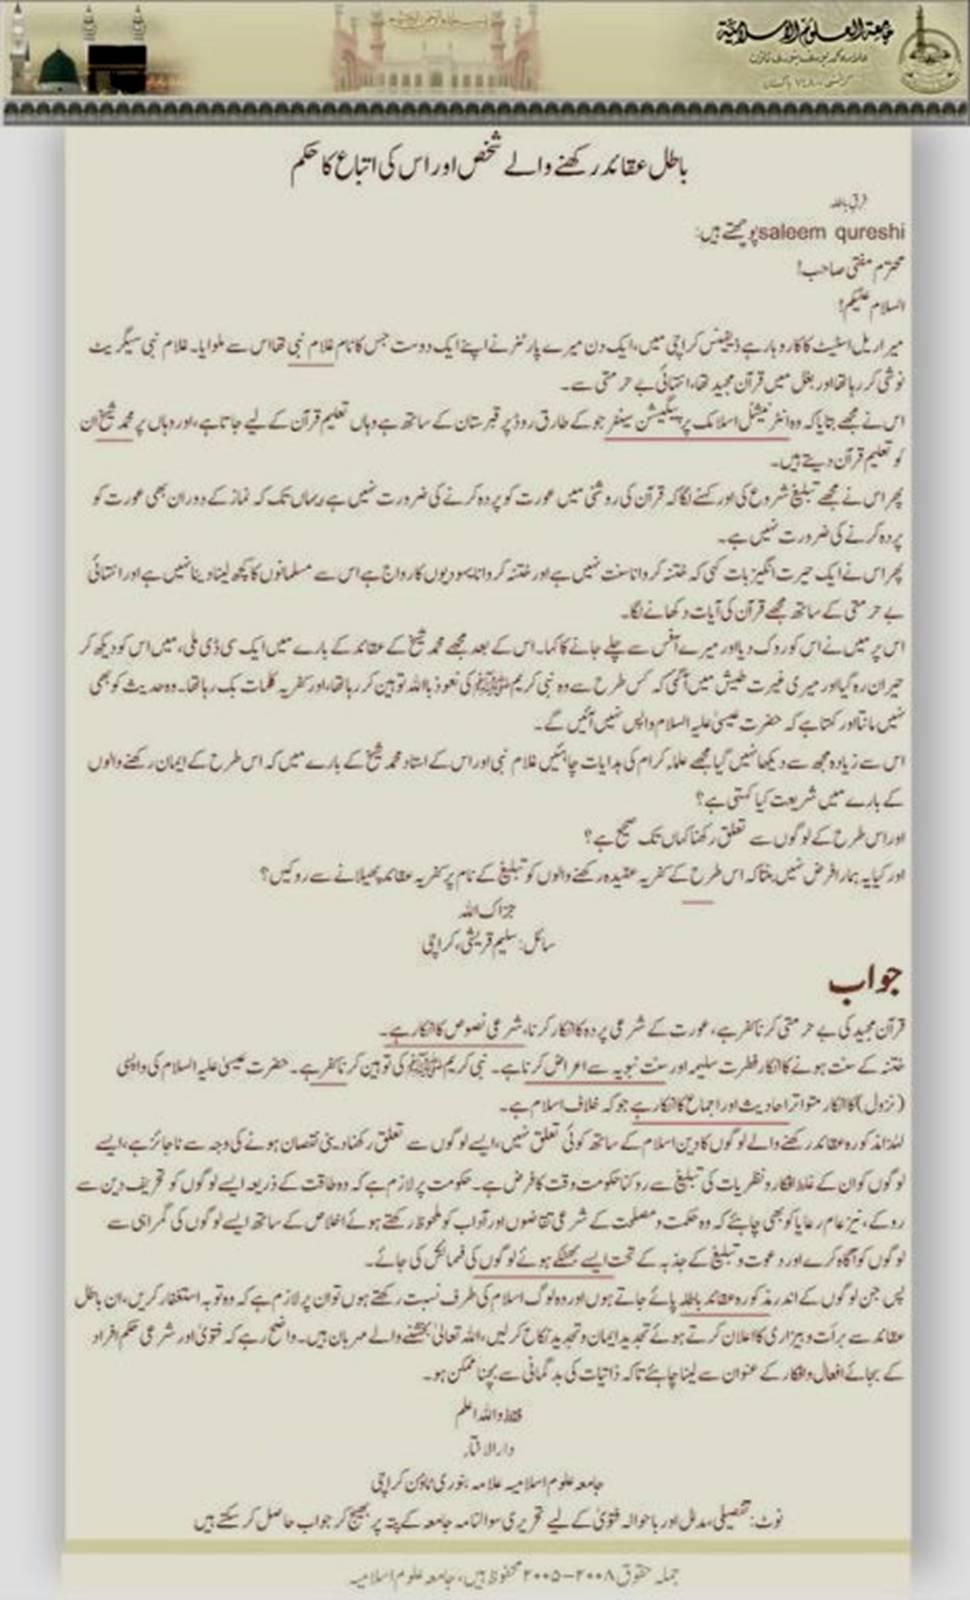 جامعة العلوم الاسلامیة
علامہ محمد یوسف بنوری ٹاؤن
کراچی ۷۴۸۰۰ پاکستان
باطل عقائد رکھنے والے شخص اور اس کی اتباع کا حکم
فرق باطلہ
saleem qureshi پوچھتے ہیں:
محترم مفتی صاحب!
السلام علیکم!
میرا ریل اسٹیٹ کا کاروبار ہے ڈیفینس کراچی میں، ایک دن میرے پارٹنر نے اپنے ایک دوست جس کا نام غلام نبی تھا اس سے ملوایا۔ غلام نبی سیگریٹ
نوشی کر رہا تھا اور بغل میں قرآن مجید تھا، انتہائی بے حرمتی سے۔
اس نے مجھے بتایا کہ وہ انٹرنیشنل اسلامک پروپیگیشن سینٹر جو کے طارق روڈ پر قبرستان کے ساتھ ہے وہاں تعلیم قرآن کے لیے جاتا ہے، اور وہاں پر محمد شیخ ان
کو تعلیم قرآن دیتے ہیں۔
پھر اس نے مجھے تبلیغ شروع کی اور کہنے لگا کہ قرآن کی روشنی میں عورت کو پردہ کرنے کی ضرورت نہیں ہے یہاں تک کہ نماز کے دوران بھی عورت کو
پردہ کرنے کی ضرورت نہیں ہے۔
پھر اس نے ایک حیرت انگیز بات کہی کہ ختنہ کروانا سنت نہیں ہے اور ختنہ کروانا یہودیوں کا رواج ہے اس سے مسلمانوں کا کچھ لینا دینا نہیں ہے اور انتہائی
بے حرمتی کے ساتھ مجھے قرآن کی آیات دکھانے لگا۔
اس پر میں نے اس کو روک دیا اور میرے آفس سے چلے جانے کا کہا۔ اس کے بعد مجھے محمد شیخ کے عقائد کے بارے میں ایک سی ڈی ملی، میں اس کو دیکھ کر
حیران رہ گیا اور میری غیرت طیش میں آگئی کہ کس طرح سے وہ نبی کریم ﷺ کی نعوذ باللہ توہین کر رہا تھا، اور کفریہ کلمات بک رہا تھا۔ وہ حدیث کو بھی
نہیں مانتا اور کہتا ہے کہ حضرت عیسیٰ علیہ السلام واپس نہیں آئیں گے۔
اس سے زیادہ مجھ سے دیکھا نہیں گیا مجھے علماء کرام کی ہدایات چاہئیں غلام نبی اور اس کے استاد محمد شیخ کے بارے میں کہ اس طرح کے ایمان رکھنے والوں
کے بارے میں شریعت کیا کہتی ہے؟
اور اس طرح کے لوگوں سے تعلق رکھنا کہاں تک صحیح ہے؟
اور کیا یہ ہمارا فرض نہیں بنتا کہ اس طرح کے کفریہ عقیدہ رکھنے والوں کو تبلیغ کے نام پر کفریہ عقائد پھیلانے سے روکیں؟
جزاک اللہ
سائل: سلیم قریشی، کراچی
جواب
قرآن مجید کی بے حرمتی کرنا کفر ہے، عورت کے شرعی پردہ کا انکار کرنا، شرعی نصوص کا انکار ہے۔
ختنہ کے سنت ہونے کا انکار فطرت سلیمہ اور سنت نبویہ سے اعراض کرنا ہے۔ نبی کریم ﷺ کی توہین کرنا کفر ہے۔ حضرت عیسیٰ علیہ السلام کی واپسی
(نزول) کا انکار متواتر احادیث اور اجماع کا انکار ہے جو کہ خلاف اسلام ہے۔
لہٰذا مذکورہ عقائد رکھنے والے لوگوں کا دین اسلام کے ساتھ کوئی تعلق نہیں، ایسے لوگوں سے تعلق رکھنا دینی نقصان ہونے کی وجہ سے ناجائز ہے، ایسے
لوگوں کو ان کے غلط افکار و نظریات کی تبلیغ سے روکنا حکومت وقت کا فرض ہے۔ حکومت پر لازم ہے کہ وہ طاقت کے ذریعہ ایسے لوگوں کو تحریف دین سے
روکے، نیز عام رعایا کو بھی چاہئے کہ وہ حکمت و مصلحت کے شرعی تقاضوں اور آداب کو ملحوظ رکھتے ہوئے اخلاص کے ساتھ ایسے لوگوں کی گمراہی سے
لوگوں کو آگاہ کرے اور دعوت و تبلیغ کے جذبہ کے تحت ایسے بھٹکے ہوئے لوگوں کی فہمائش کی جائے۔
پس جن لوگوں کے اندر مذکورہ عقائد باطلہ پائے جاتے ہوں اور وہ لوگ اسلام کی طرف نسبت رکھتے ہوں تو ان پر لازم ہے کہ وہ توبہ استغفار کریں، ان باطل
عقائد سے برأت و بیزاری کا اعلان کرتے ہوئے تجدید ایمان و تجدید نکاح کر لیں، اللہ تعالیٰ بخشنے والے مہربان ہیں۔ واضح رہے کہ فتویٰ اور شرعی حکم افراد
کے بجائے افعال و افکار کے عنوان سے لینا چاہئے تاکہ ذاتیات کی بدگمانی سے بچنا ممکن ہو۔
فقط واللہ اعلم
دارالافتاء
جامعہ علوم اسلامیہ علامہ بنوری ٹاؤن کراچی
نوٹ: تفصیلی، مدلل اور باحوالہ فتویٰ کے لیے تحریری سوالنامہ جامعہ کے پتہ پر بھیج کر جواب حاصل کر سکتے ہیں
جملہ حقوق ۲۰۰۸-۲۰۰۵ محفوظ ہیں، جامعہ علوم اسلامیہ